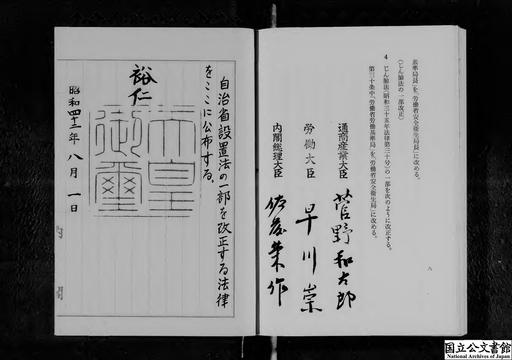 基準局長」を「労働省安全衛生局長」に改める。
(じん肺法の一部改正)
4 じん肺法(昭和三十五年法律第三十号)の一部を次のように改正する。
第三十条中「労働省労働基準局」を「労働省安全衛生局」に改める。
八
通商産業大臣 菅野和太郎
労働大臣 早川崇
内閣総理大臣 佐藤栄作
自治省設置法の一部を改正する法律
をここに公布する。
裕仁
天皇
御璽
昭和四十二年八月一日
国立公文書館
National Archives of Japan